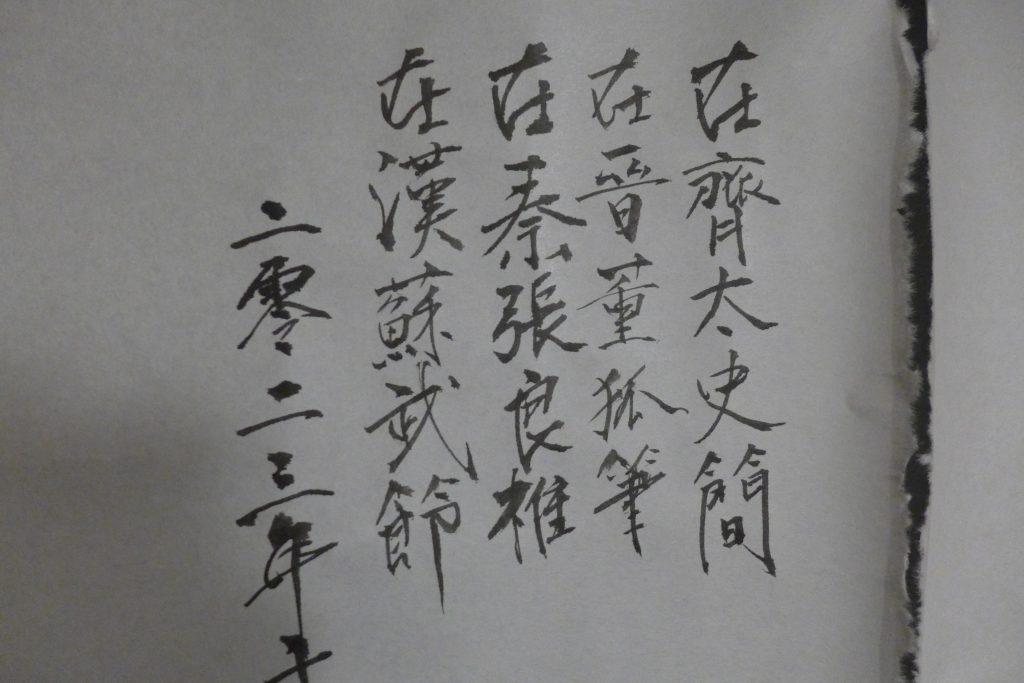 在齊太史簡
在晉董狐筆
在秦張良椎
在漢蘇武節
二零二三年十